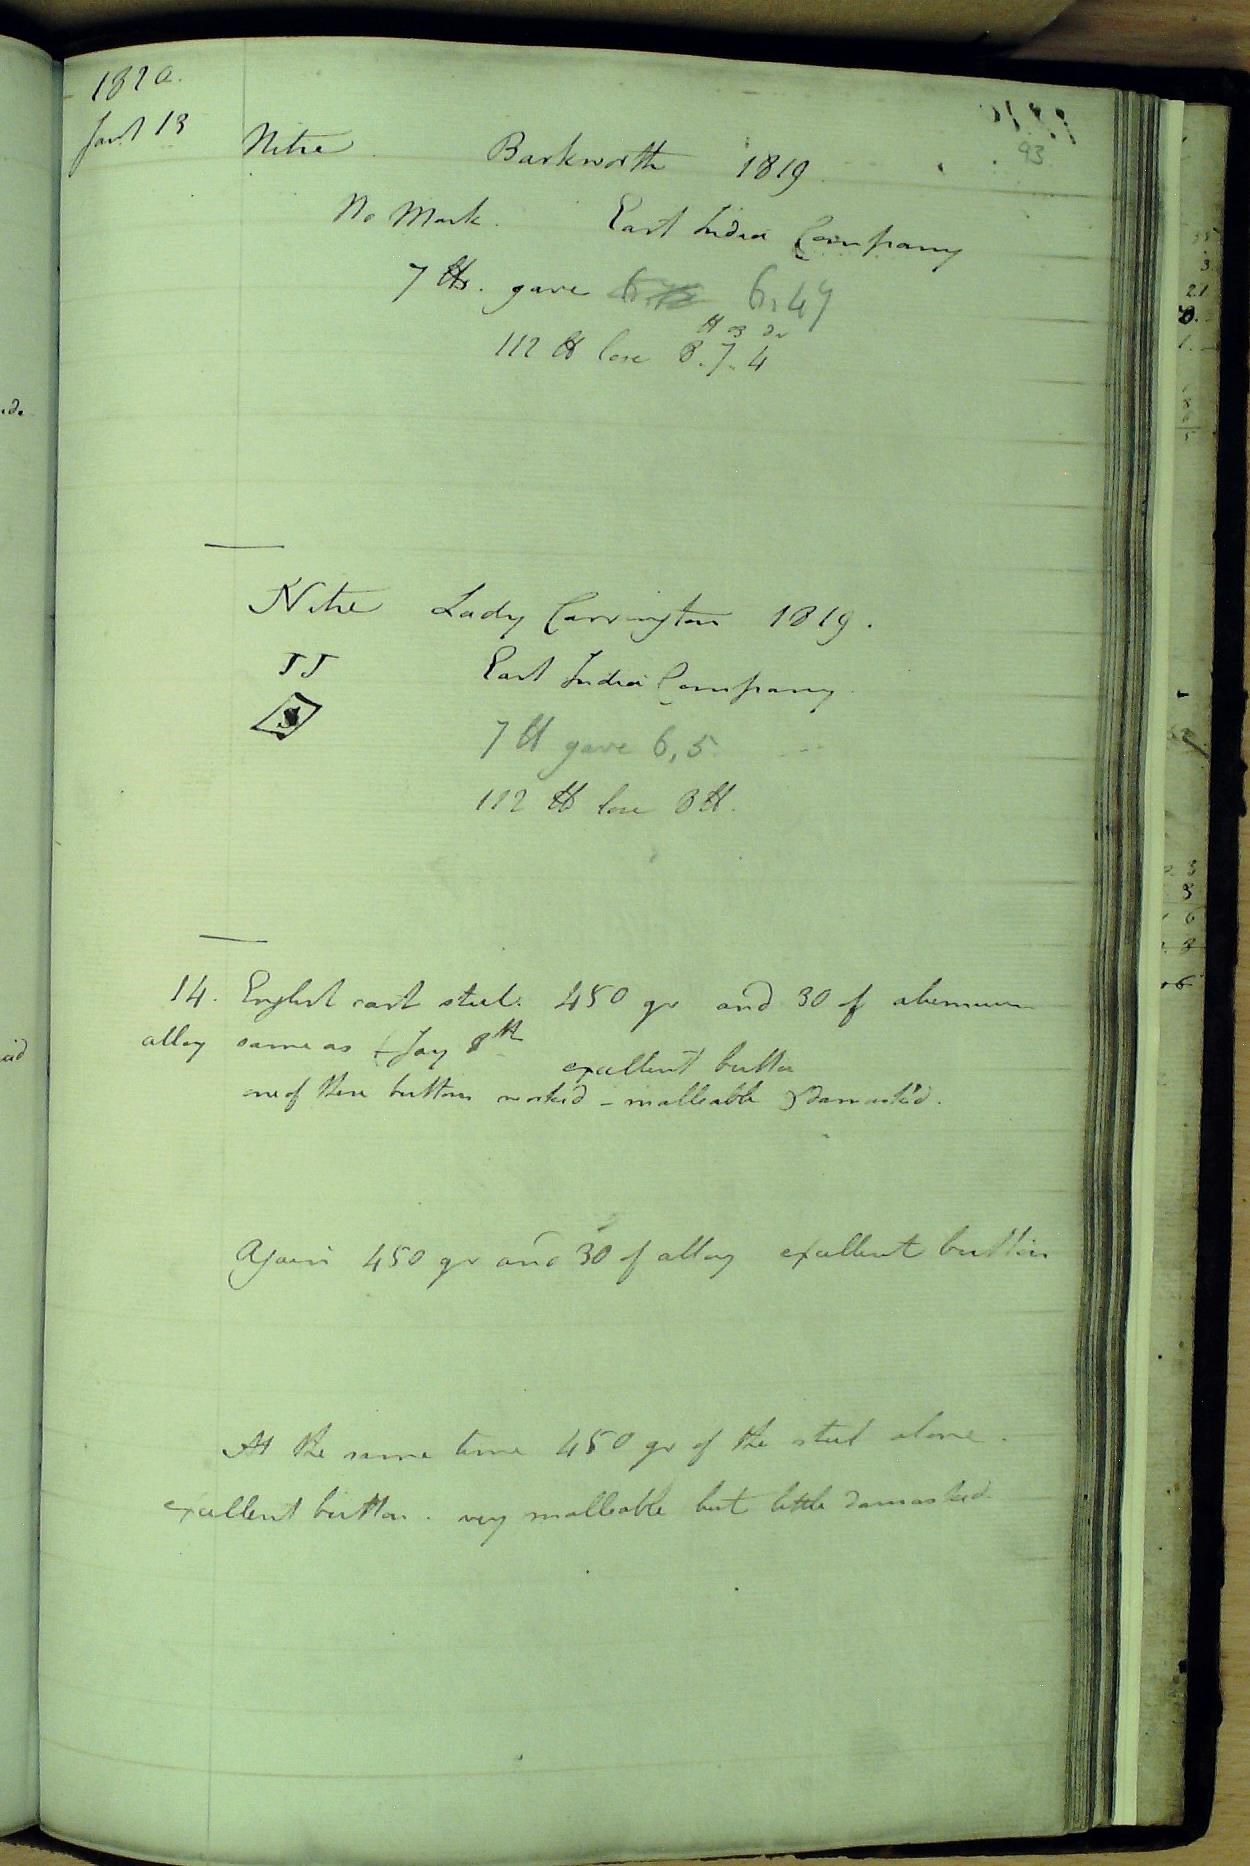 1820.
Jany 13 Nitre Barkworth 1819
93
No Mark. East India Company
7 lbs. gave 6,47
lb oz Dr
112 lb lose 8.7.4
Nitre Lady Carrington 1819.
JJ East India Company
S
7 lb gave 6,5
112 lb lose 8 lb.
14. English cast steel. 450 gr and 30 of alumium
alloy same as Jay 8th
excellent button
one of these buttons worked - malleable & damasked.
Again 450 gr and 30 of alloy excellent button
At the same time 450 gr of the steel alone.
excellent button. very malleable but little damasked.